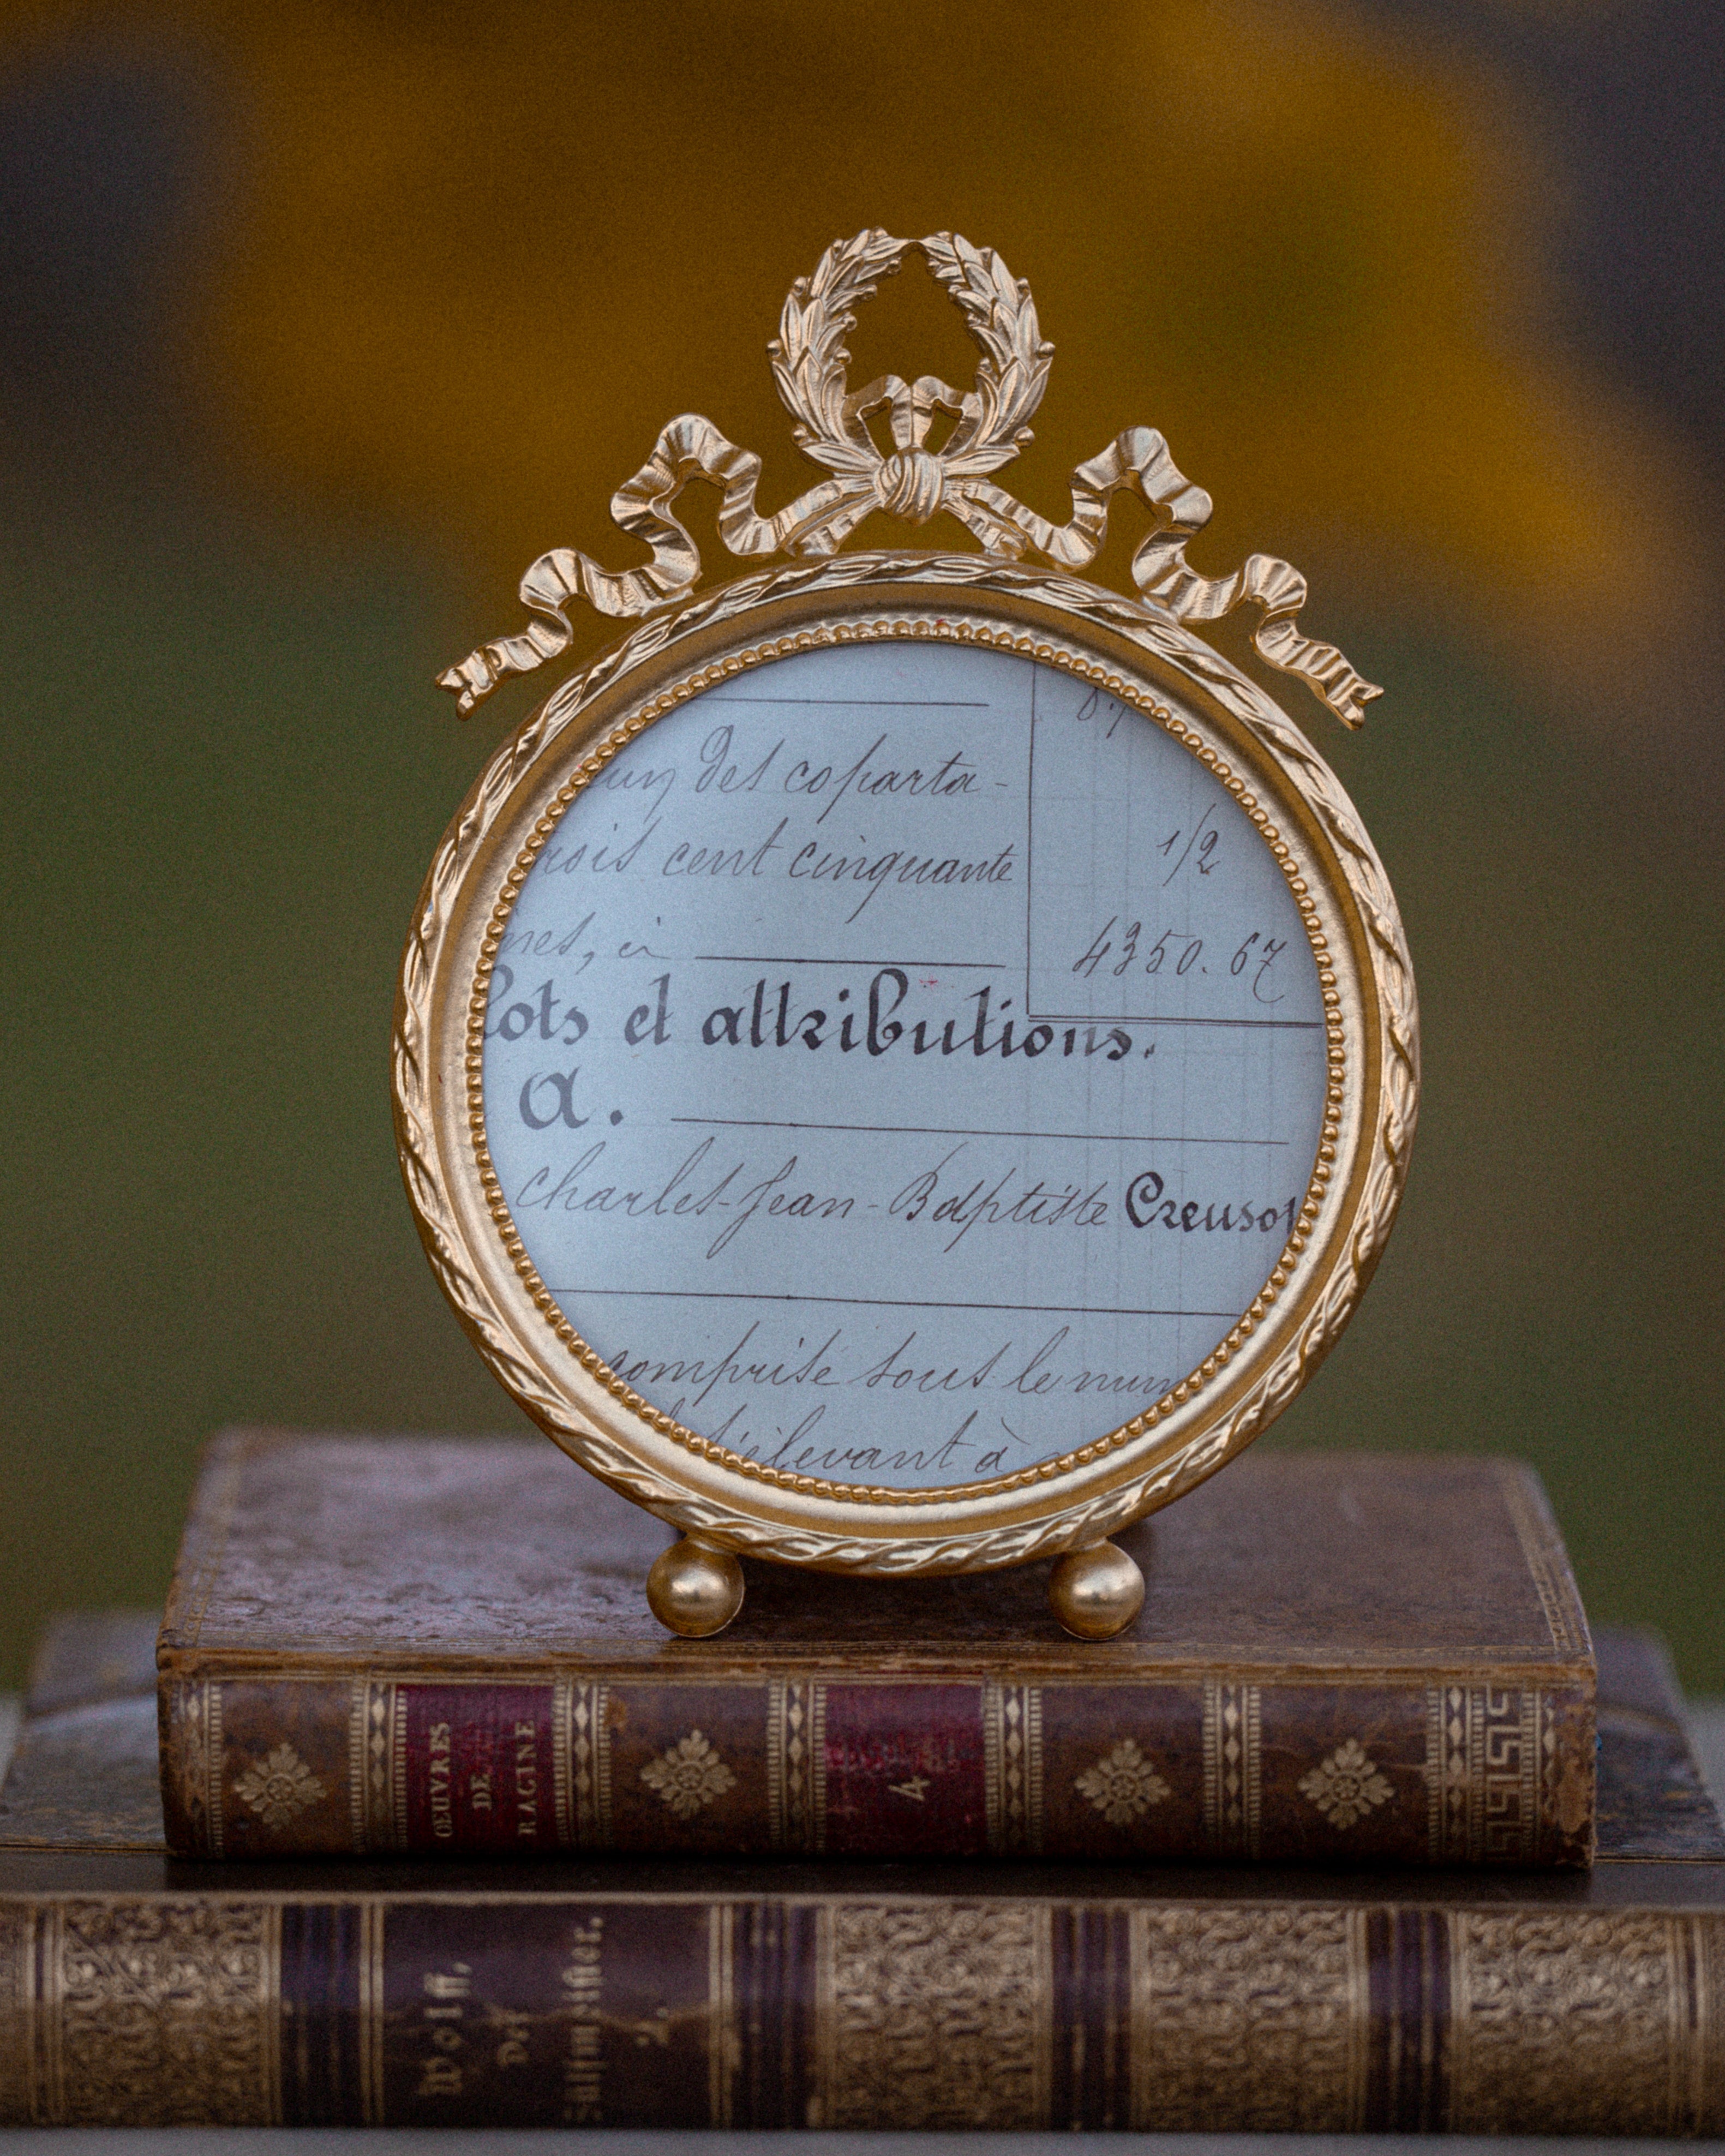 des coparta-
rois cent cinquante
1/2
nes, ci
4350.67
lots et attributions.
a.
Charles-Jean-Baptiste Creusot
comprise sous le num
s'élevant à
ŒUVRES
DE
RACINE
4
Wolff,
Der
Sülfmeister.
2.